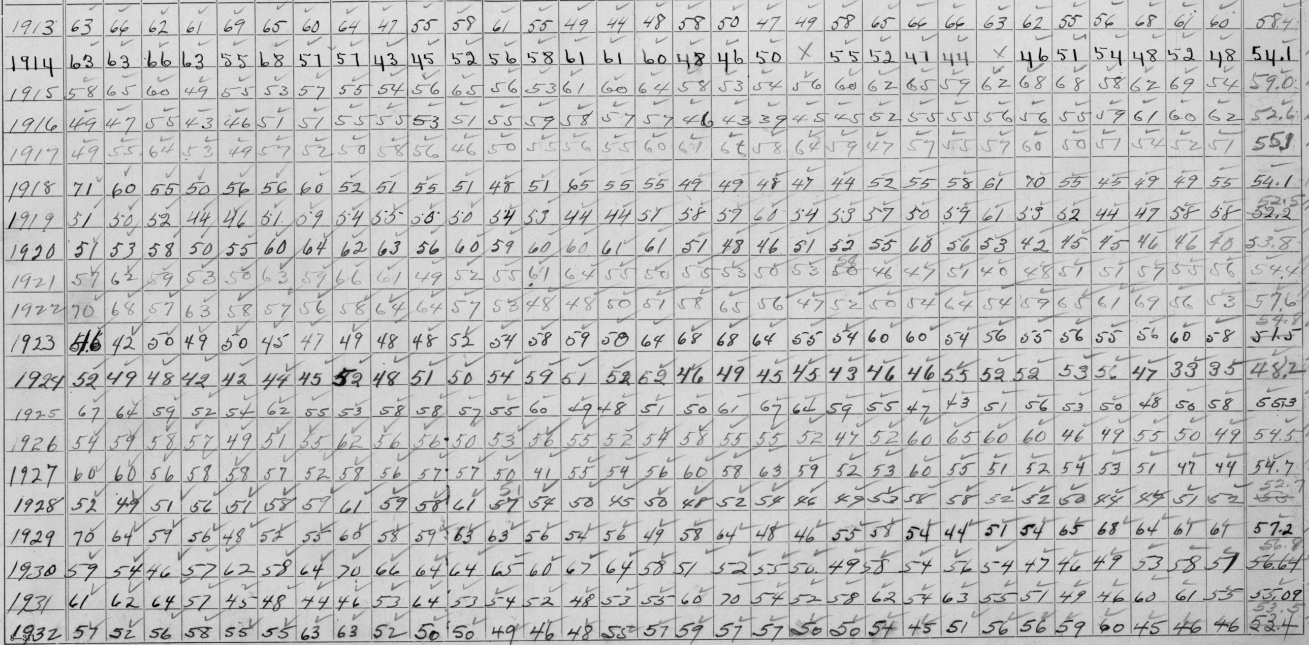 1913 63 66 62 61 69 65 60 64 47 55 58 61 55 49 44 48 58 50 47 49 58 65 66 66 63 62 55 56 68 61 60 58.4
1914 63 63 66 63 55 68 57 57 43 45 52 56 58 61 61 60 48 46 50 X 55 52 47 44 X 46 51 54 48 52 48 54.1
1915 58 65 60 49 55 53 57 55 54 56 65 56 53 61 60 64 58 53 54 56 60 62 65 59 62 68 68 58 62 69 54 59.0
1916 49 47 55 43 46 51 51 55 55 53 51 55 59 58 57 57 46 43 39 45 45 52 55 55 56 56 55 59 61 60 62 52.6
1917 49 55 64 53 49 57 52 50 58 56 46 50 55 56 55 60 67 58 64 59 47 57 55 57 60 50 57 54 52 51 55.1
1918 71 60 55 50 56 56 60 52 51 55 51 48 51 65 55 55 49 49 48 47 44 52 55 58 61 70 55 45 49 49 55 54.1
1919 51 50 52 44 46 51 59 54 55 50 50 54 53 44 44 57 58 57 60 54 53 57 50 59 61 53 52 44 47 58 58 52.2
1920 51 53 58 50 55 60 64 62 63 56 60 59 60 60 61 61 51 48 46 51 52 55 60 56 53 42 45 45 46 46 40 53.8
1921 57 62 59 53 50 63 59 66 61 49 52 55 61 64 55 50 55 53 50 53 50 46 47 57 40 48 51 51 57 55 56 54.4
1922 70 68 57 63 58 57 56 58 64 64 57 53 48 48 50 57 58 65 56 47 52 50 54 64 54 59 65 61 69 56 53 57.6
1923 46 42 50 49 50 45 47 49 48 48 52 54 58 59 58 64 68 68 64 55 54 60 60 54 56 55 56 55 56 60 58 51.5
1924 52 49 48 42 42 44 45 52 48 51 50 54 59 51 52 52 46 49 45 45 43 46 46 55 52 52 53 56 47 33 35 48.2
1925 67 64 59 52 54 62 55 53 58 58 57 55 60 49 48 51 50 61 67 64 59 55 47 43 51 56 53 50 48 50 58 55.3
1926 54 59 58 57 49 51 55 62 56 56 50 53 56 55 52 54 58 55 55 52 47 52 60 65 60 60 46 49 55 50 49 54.5
1927 60 60 56 58 58 57 52 58 56 57 57 50 41 55 54 56 60 58 63 59 52 53 60 55 51 52 54 53 51 47 44 54.7
1928 52 49 51 56 51 58 57 61 59 58 61 57 54 50 45 50 48 52 54 46 49 53 58 58 52 52 50 44 44 51 52 52.7
1929 70 64 59 56 48 52 55 60 58 59 63 63 56 54 56 49 58 64 48 46 55 58 54 44 51 54 65 68 64 67 67 57.2
1930 59 54 46 57 62 58 64 70 66 64 64 65 60 67 64 58 51 52 55 50 49 58 54 56 54 47 46 49 53 58 57 56.64
1931 61 62 64 57 45 48 44 46 53 64 53 54 52 48 53 55 60 70 54 52 58 62 54 63 55 51 49 46 60 61 55 55.09
1932 57 52 56 58 55 55 63 63 52 50 50 49 46 48 55 57 59 57 57 50 50 54 45 51 56 56 59 60 45 46 46 53.4